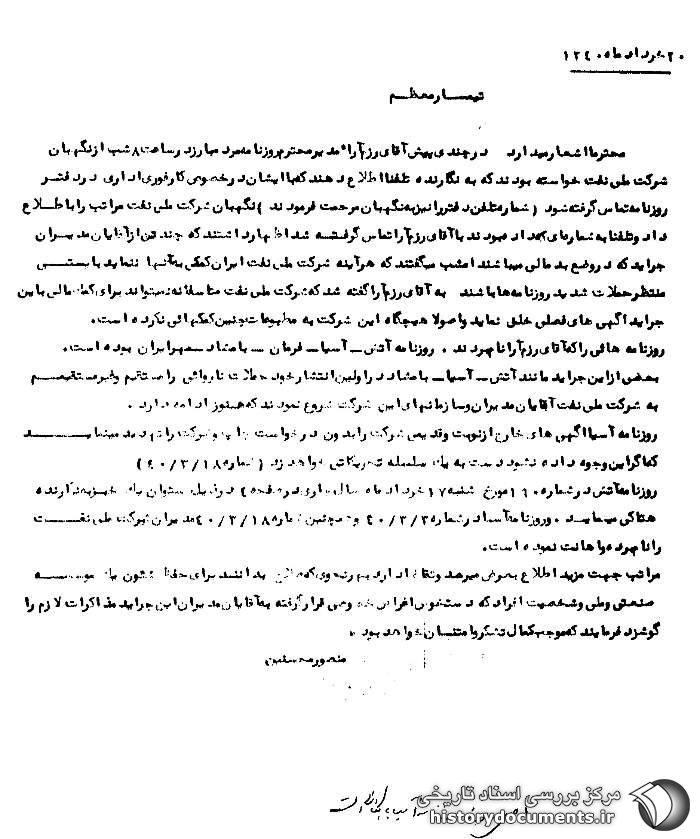 ۲۰ خرداد ماه ۱۳۴۰
تیمسار معظم
محترما اشعار میدارد در چندی پیش آقای رزم آراء مدیر محترم روزنامه مرد مبارز در ساعت ۸ شب از نگهبان
شرکت ملی نفت خواسته بودند که به نگارنده تلفنا اطلاع دهند که با ایشان در خصوص کار فوری اداری در دفتر
روزنامه تماس گرفته شود ( شماره تلفن دفتر را نیز به نگهبان مرحمت فرمودند ) نگهبان شرکت ملی نفت مراتب را باطلاع
داد و تلفنا به شماره‌ای که داده بودند با آقای رزم آرا تماس گرفته شد اظهار داشتند که چند تن از آقایان مدیران
جراید که در وضع بد مالی میباشند امشب میگفتند که هرآینه شرکت ملی نفت ایران کمکی به آنها ننماید بایستی
منتظر حملات شدید روزنامه‌ها باشند به آقای رزم آرا گفته شد که شرکت ملی نفت متاسفانه نمیتواند برای کمک مالی باین
جراید آگهی های فصلی خلق نماید و اصولا هیچگاه این شرکت به مطبوعات چنین کمکهائی نکرده است.
روزنامه هائی را که آقای رزم آرا نام بردند . روزنامه آتش ــ آسیا ــ فرمان ــ بامشاد ــ مهر ایران بوده است.
بعضی از این جراید مانند آتش ــ آسیا ــ بامشاد در اولین انتشار خود حملات ناروائی را مستقیم و غیر مستقیم
به شرکت ملی نفت آقایان مدیران و سازمانهای این شرکت شروع نمودند که هنوز ادامه دارد .
روزنامه آسیا آگهی های خارج از نوبت و قدیمی شرکت را بدون درخواست چاپ و شرکت را تهدید مینماید
که اگر این وجوه داده نشود دست به یک سلسله تحریکاتی خواهد زد ( شماره ۴۰/۳/۱۸ )
روزنامه آتش در شماره مورخ شنبه ۱۷ خرداد ماه سال جاری در صفحه ۴ در ذیل عنوان یک خبر به نگارنده
هتاکی مینماید . و روزنامه آسیا در شماره ۴۰/۳/۳ و همچنین شماره ۴۰/۳/۱۸ مدیران شرکت ملی نفت
را نام برده و اهانت نموده است.
مراتب جهت مزید اطلاع بعرض میرسد و تقاضا دارد بهر نحوی که صلاح بدانند برای حفظ شئون یک موسسه
صنعتی و ملی و شخصیت افراد که دستخوش اغراض خصوصی قرار گرفته به آقایان مدیران این جراید مذاکرات لازم را
گوشزد فرمایند که موجب کمال تشکر و امتنان خواهد بود .
منصور محسنین
مرکز بررسی اسناد تاریخی
historydocuments.ir